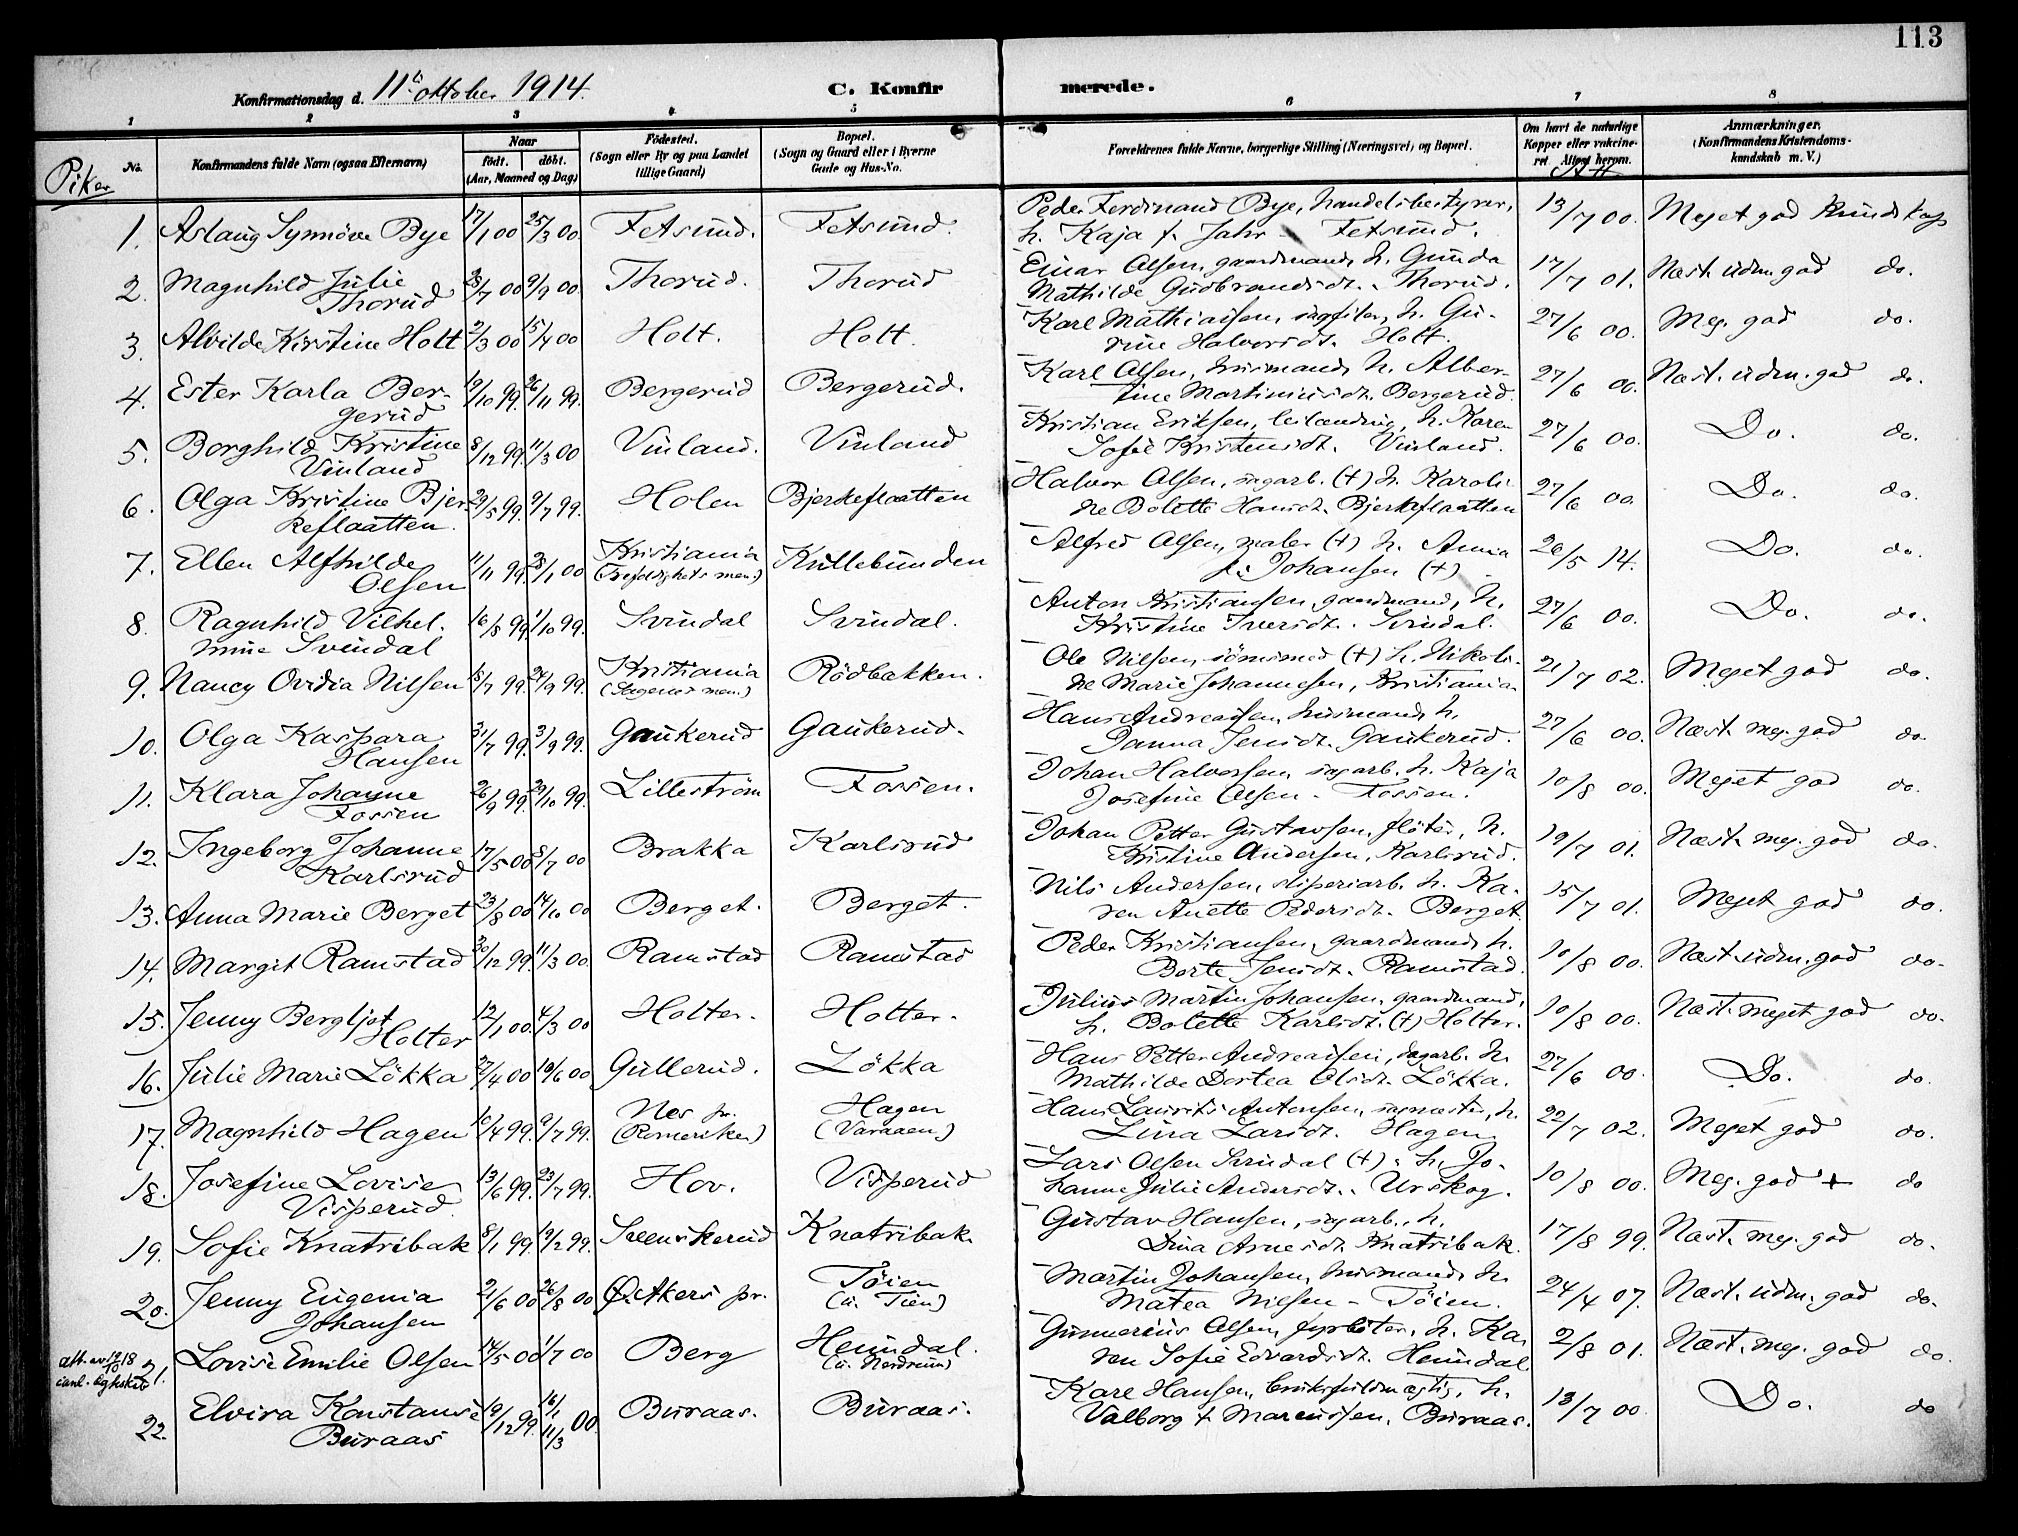 113
Konfirmationsdag d. 11te oktober 1914. C. Konfirmerede.
1 2 3 4 5 6 7 8
No. Konfirmandens fulde Navn (ogsaa Efternavn) Naar født. døbt. (Aar, Maaned og Dag) Fødested. (Sogn eller By og paa Landet tillige Gaard) Bopæl. (Sogn og Gaard eller i Byerne Gade og Hus-No. Forældrenes fulde Navne, borgerlige Stilling (Næringsvei) og Bopæl. Om havt de naturlige Kopper eller vaccineret. Attest herom. Anmærkninger. (Konfirmandens Kristendomskundskab m. V.)
Piker
1. Aslaug Synnöve Bye 17/1 00 25/3 00. Fetsund. Fetsund. Peder Ferdinand Bye, handelsbestyrer,
h. Kaja f. Jahr - Fetsund. 13/7 00. Meget god kundskap
2. Magnhild Julie
Thorud 28/7 00 9/9 00. Thorud. Thorud Einar Olsen, gaardmand, h. Gunda
Mathilde Gudbrandsdt. - Thorud. 17/7 01. Næst. udm. god do.
3. Alvilde Kirstine Holt 2/3 00 15/4 00 Holt. Holt. Karl Mathiassen, sagfiler, h. Gu-
rine Halvorsdt. Holt. 27/6 00. Meg. god do.
4. Ester Karla Ber-
gerud 19/10 99. 26/11 99. Bergerud Bergerud. Karl Olsen, husmand, h. Alber-
tine Martinusdt. Bergerud. 27/6 00. Næst. udm. god do.
5. Borghild Kristine
Vinland 8/12 99. 11/3 00 Vinland. Vinland Kristian Eriksen, leilænding, h. Karen
Sofie Kristensdt. Vinland. 27/6 00. Do. do.
6. Olga Kristine Bjer-
keflaatten. 29/5 99. 9/7 99. Holen Bjerkeflaatten Halvor Olsen, sagarb. (+) h. Karoli-
ne Bolette Hansdt. Bjerkeflaatten 27/6 00. Do. do.
7. Ellen Alfhilde
Olsen 11/11 99. 28/1 00 Kristiania
(Trefoldighets men.) Kullebunden Alfred Olsen, maler (+) h. Anna
f. Johansen (+) 26/5 14. Do. do.
8. Ragnhild Vilhel-
mine Svindal 16/8 99. 1/10 99. Svindal Svindal. Anton Kristiansen, gaardmand, h.
Kristine Iversdt. - Svindal. 27/6 00. Do. do.
9. Nancy Ovidia Nilsen 15/7 99. 24/9 99. Kristiania
(Sagenes men.) Rödbakken. Ole Nilsen, sömsmed (+) h. Nikoli-
ne Marie Johannesen, Kristiania 21/7 02. Meget god do.
10. Olga Kaspara
Hansen 31/7 99. 3/9 99. Gaukerud Gaukerud. Hans Andreassen, husmand, h.
Danna Jensdt. Gaukerud. 27/6 00. Næst. meg. god do
11. Klara Johanne
Fossen 26/9 99. 29/10 99. Lilleström Fossen. Johan Halvorsen, sagarb. h. Kaja
Josefine Olsen - Fossen. 10/8 00. Meget god do.
12. Ingeborg Johanne
Karlsrud 17/5 00 8/7 00 Brakka Karlsrud Johan Petter Gustavsen, flöter, h.
Kristine Andersen, Karlsrud. 19/7 01. Næst. meg. god do.
13. Anna Marie Berget 23/8 00 14/10 00 Berget. Berget. Nils Andersen, sliperiarb. h. Ka-
ren Anette Pedersdt. Berget. 15/7 01. Meget god do.
14. Margit Ramstad 30/12 99. 11/3 00. Ramstad Ramstad Peder Kristiansen, gaardmand, h.
Berte Jensdt. Ramstad. 10/8 00. Næst. udm. god do.
15. Jenny Bergljot
Holter 12/1 00. 4/3 00 Holter. Holter. Julius Martin Johansen, gaardmand,
h. Bolette Karlsdt. (+) Holter. 10/8 00. Næst. meget god do.
16. Julie Marie Lökka 27/4 00 10/6 00 Gullerud. Lökka Hans Petter Andreassen, dagarb. h.
Mathilde Dortea Olsdt. Lökka. 27/6 00. Do. do.
17. Magnhild Hagen 10/4 99. 9/7 99. Nes pr.
(Romeriken) Hagen
(Varaaen) Hans Laurits Antonsen, sagmester, h.
Lina Larsdt. Hagen 22/7 02. Meget god do.
18. Josefine Lovise
Visperud. 13/6 99. 23/7 99. Hov. Visperud Lars Olsen Svindal (+), h. Jo-
hanne Julie Andersdt. Urskog. 10/8 00. Meg. god + do
19. Sofie Knatribak 8/1 99. 19/2 99. Svenskerud Knatribak. Gustav Hansen, sagarb., h.
Dina Arnesdt. Knatribak. 17/8 99. Næst. meg. god do.
20. Jenny Eugenia
Johansen 21/6 00 26/8 00 Ø. Akers pr. Töien
(u. Tien) Martin Johansen, husmand, h.
Matea Nilsen - Töien. 24/4 07. Næst. udm. god do.
att. av 12/10 18
i anl. egteskab 21. Lovise Emilie Olsen 14/5 00 1/7 00 Berg Heimdal.
(u. Nordrum) Gunnerius Olsen, fyrböter, h. Ka-
ren Sofie Edvardsdt. Heimdal 2/8 01. Næst. meg. god do.
22. Elvira Konstanse
Buraas 19/12 99. 16/1 11/3 00. Buraas. Buraas. Karl Hansen, bruksfuldmægtig, h.
Valborg f. Marcussen. Buraas. 13/7 00. Do. do